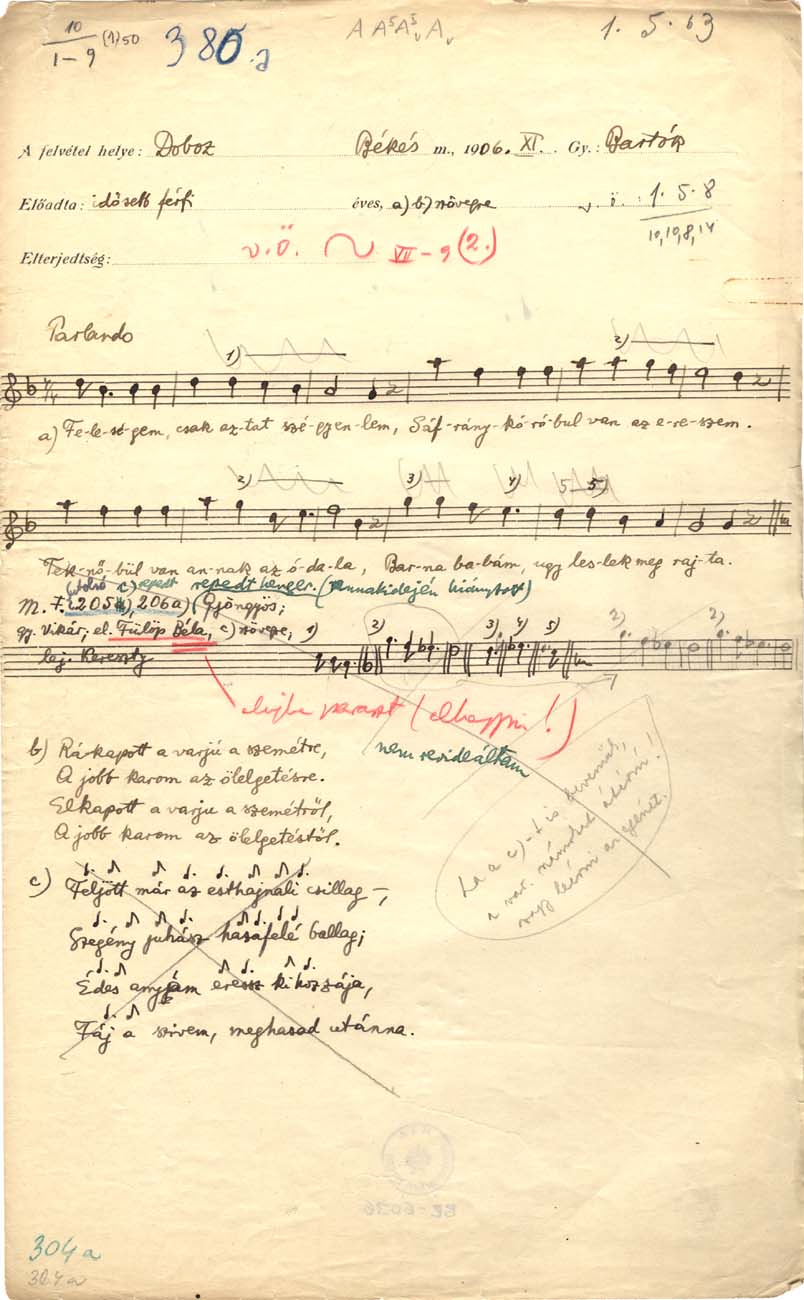 10
1–9 (1)50 380.a A A⁵A⁵ᵥAᵥ 1. 5. 63
A felvétel helye: Doboz Békés m., 1906. XI. Gy.: Bartók
Előadta: idősebb férfi éves, a) b) szövegre v. ö.: 1. 5. 8
10,10,8,14
Elterjedtség: v.ö. VII–9 (2.)
Parlando
1) 2)
a) Fe-le-sé-gem, csak az-tat szé-gyen-lem, Sáf-rány-kó-ró-bul van az e-re-szem.
2) 3) 4) 5 5)
Tek-nő-bül van an-nak az ó-da-la, Bar-na ba-bám, ugy les-lek meg raj-ta.
repedt henger. (annakidején hiányzott)
M. F. 1205a), 206a) Gyöngyös;
gy. Vikár; el. Fülöp Béla, c) szövegre; 1) 2) 3) 4) 5) 2) 2)
lej. Kereszty
(elhagyni!)
nem revideáltam
b) Rá-kapott a varjú a szemétre,
A jobb karom az ölelgetésre.
Elkapott a varju a szemétről,
A jobb karom az ölelgetéstől.
c) Feljött már az esthajnali csillag –,
Szegény juhász hazafelé ballag;
Édes anyám eressz ki hozzája,
Fáj a szivem, meghasad utánna.
BE-6036
304a
304a